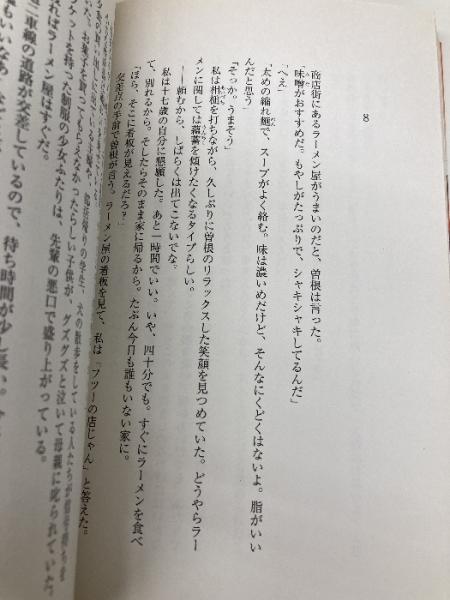 8
商店街にあるラーメン屋がうまいのだと、曽根は言った。
「味噌がおすすめだ。もやしがたっぷりで、シャキシャキしてるんだ」
「へえ」
「太めの縮れ麺で、スープがよく絡む。味は濃いめだけど、そんなにくどくはないよ。脂がいい
んだと思う」
「そっか。うまそう」
私は相槌を打ちながら、久しぶりに曽根のリラックスした笑顔を見つめていた。どうやらラー
メンに関しては蘊蓄を傾けたくなるタイプらしい。
――頼むから、しばらくは出てこないでな。
私は十七歳の自分に懇願した。あと一時間でいい。いや、四十分でも。すぐにラーメンを食べ
て、別れるから。そしたらそのまま家に帰るから。たぶん今日も誰もいない家に。
「ほら、そこに看板が見えるだろ？」
交差点の手前で曽根が言う。ラーメン屋の看板を見て、私は「フツーの店じゃん」と答えた。
犬の散歩をしている人たちが
お菓子を買ってもらえなかったらしい子供が、グズグズと泣いて母親に叱られていた。
ケットを持った制服の少女ふたりは、先輩の悪口で盛り上がっている。
ればラーメン屋はすぐだ。
二車線の道路が交差しているので、待ち時間が少し長い。
もいいなあ